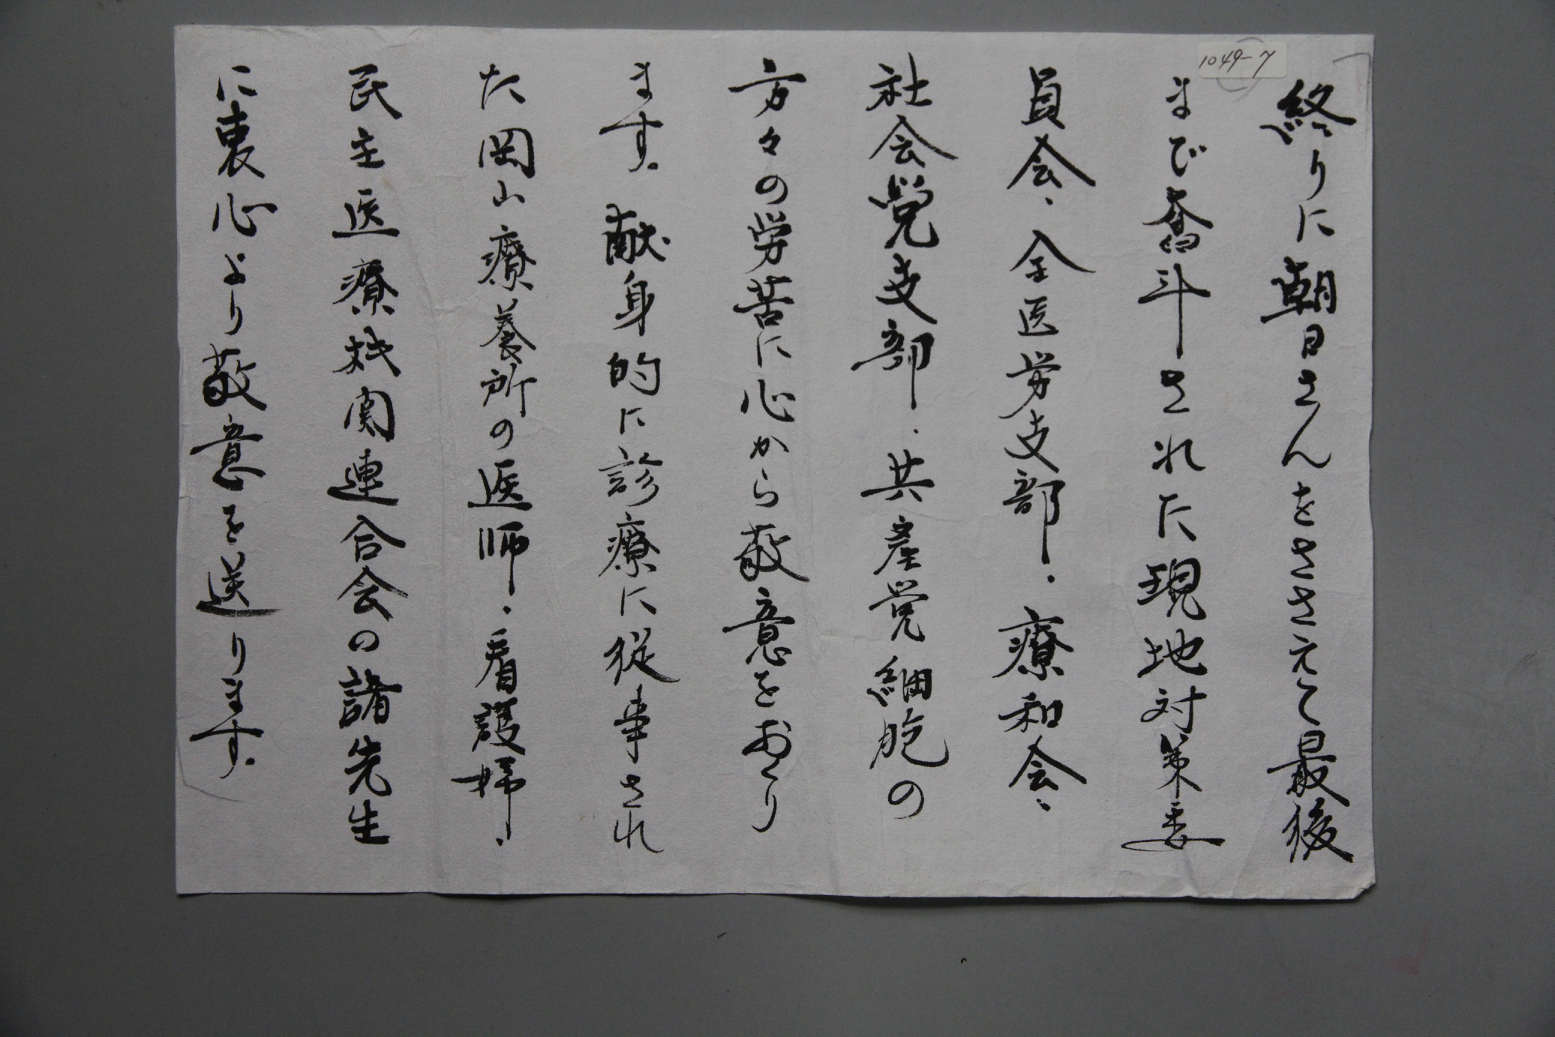 1049-7
終りに朝日さんをささえて最後
まで奮斗された現地対策委
員会、全医労支部、療和会、
社会党支部、共産党細胞の
方々の労苦に心から敬意をおくり
ます。献身的に診療に従事され
た岡山療養所の医師、看護婦、
民主医療機関連合会の諸先生
に衷心より敬意を送ります。